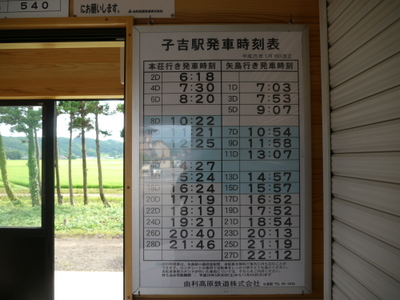 540
にお願いします。
子吉駅発車時刻表
本荘行き発車時刻 矢島行き発車時刻
2D 6:18
4D 7:30 1D 7:03
6D 8:20 3D 7:53
5D 9:07
8D 10:22
11:21 7D 10:54
12:25 9D 11:58
11D 13:07
14:27
15:24 13D 14:57
16:24 15D 15:57
20D 17:19 17D 16:52
22D 18:19 19D 17:52
24D 19:21 21D 18:54
26D 20:46 23D 20:13
28D 21:46 25D 21:19
27D 22:12
由利高原鉄道株式会社